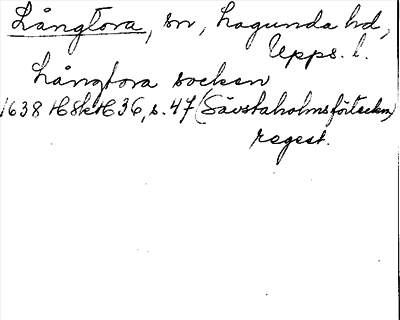 Långtora, sn, Lagunda hd,
Upps. l.
Långtora socken
1638 HSH H 36, s. 47 (Sävstaholmsförteckn)
regest.